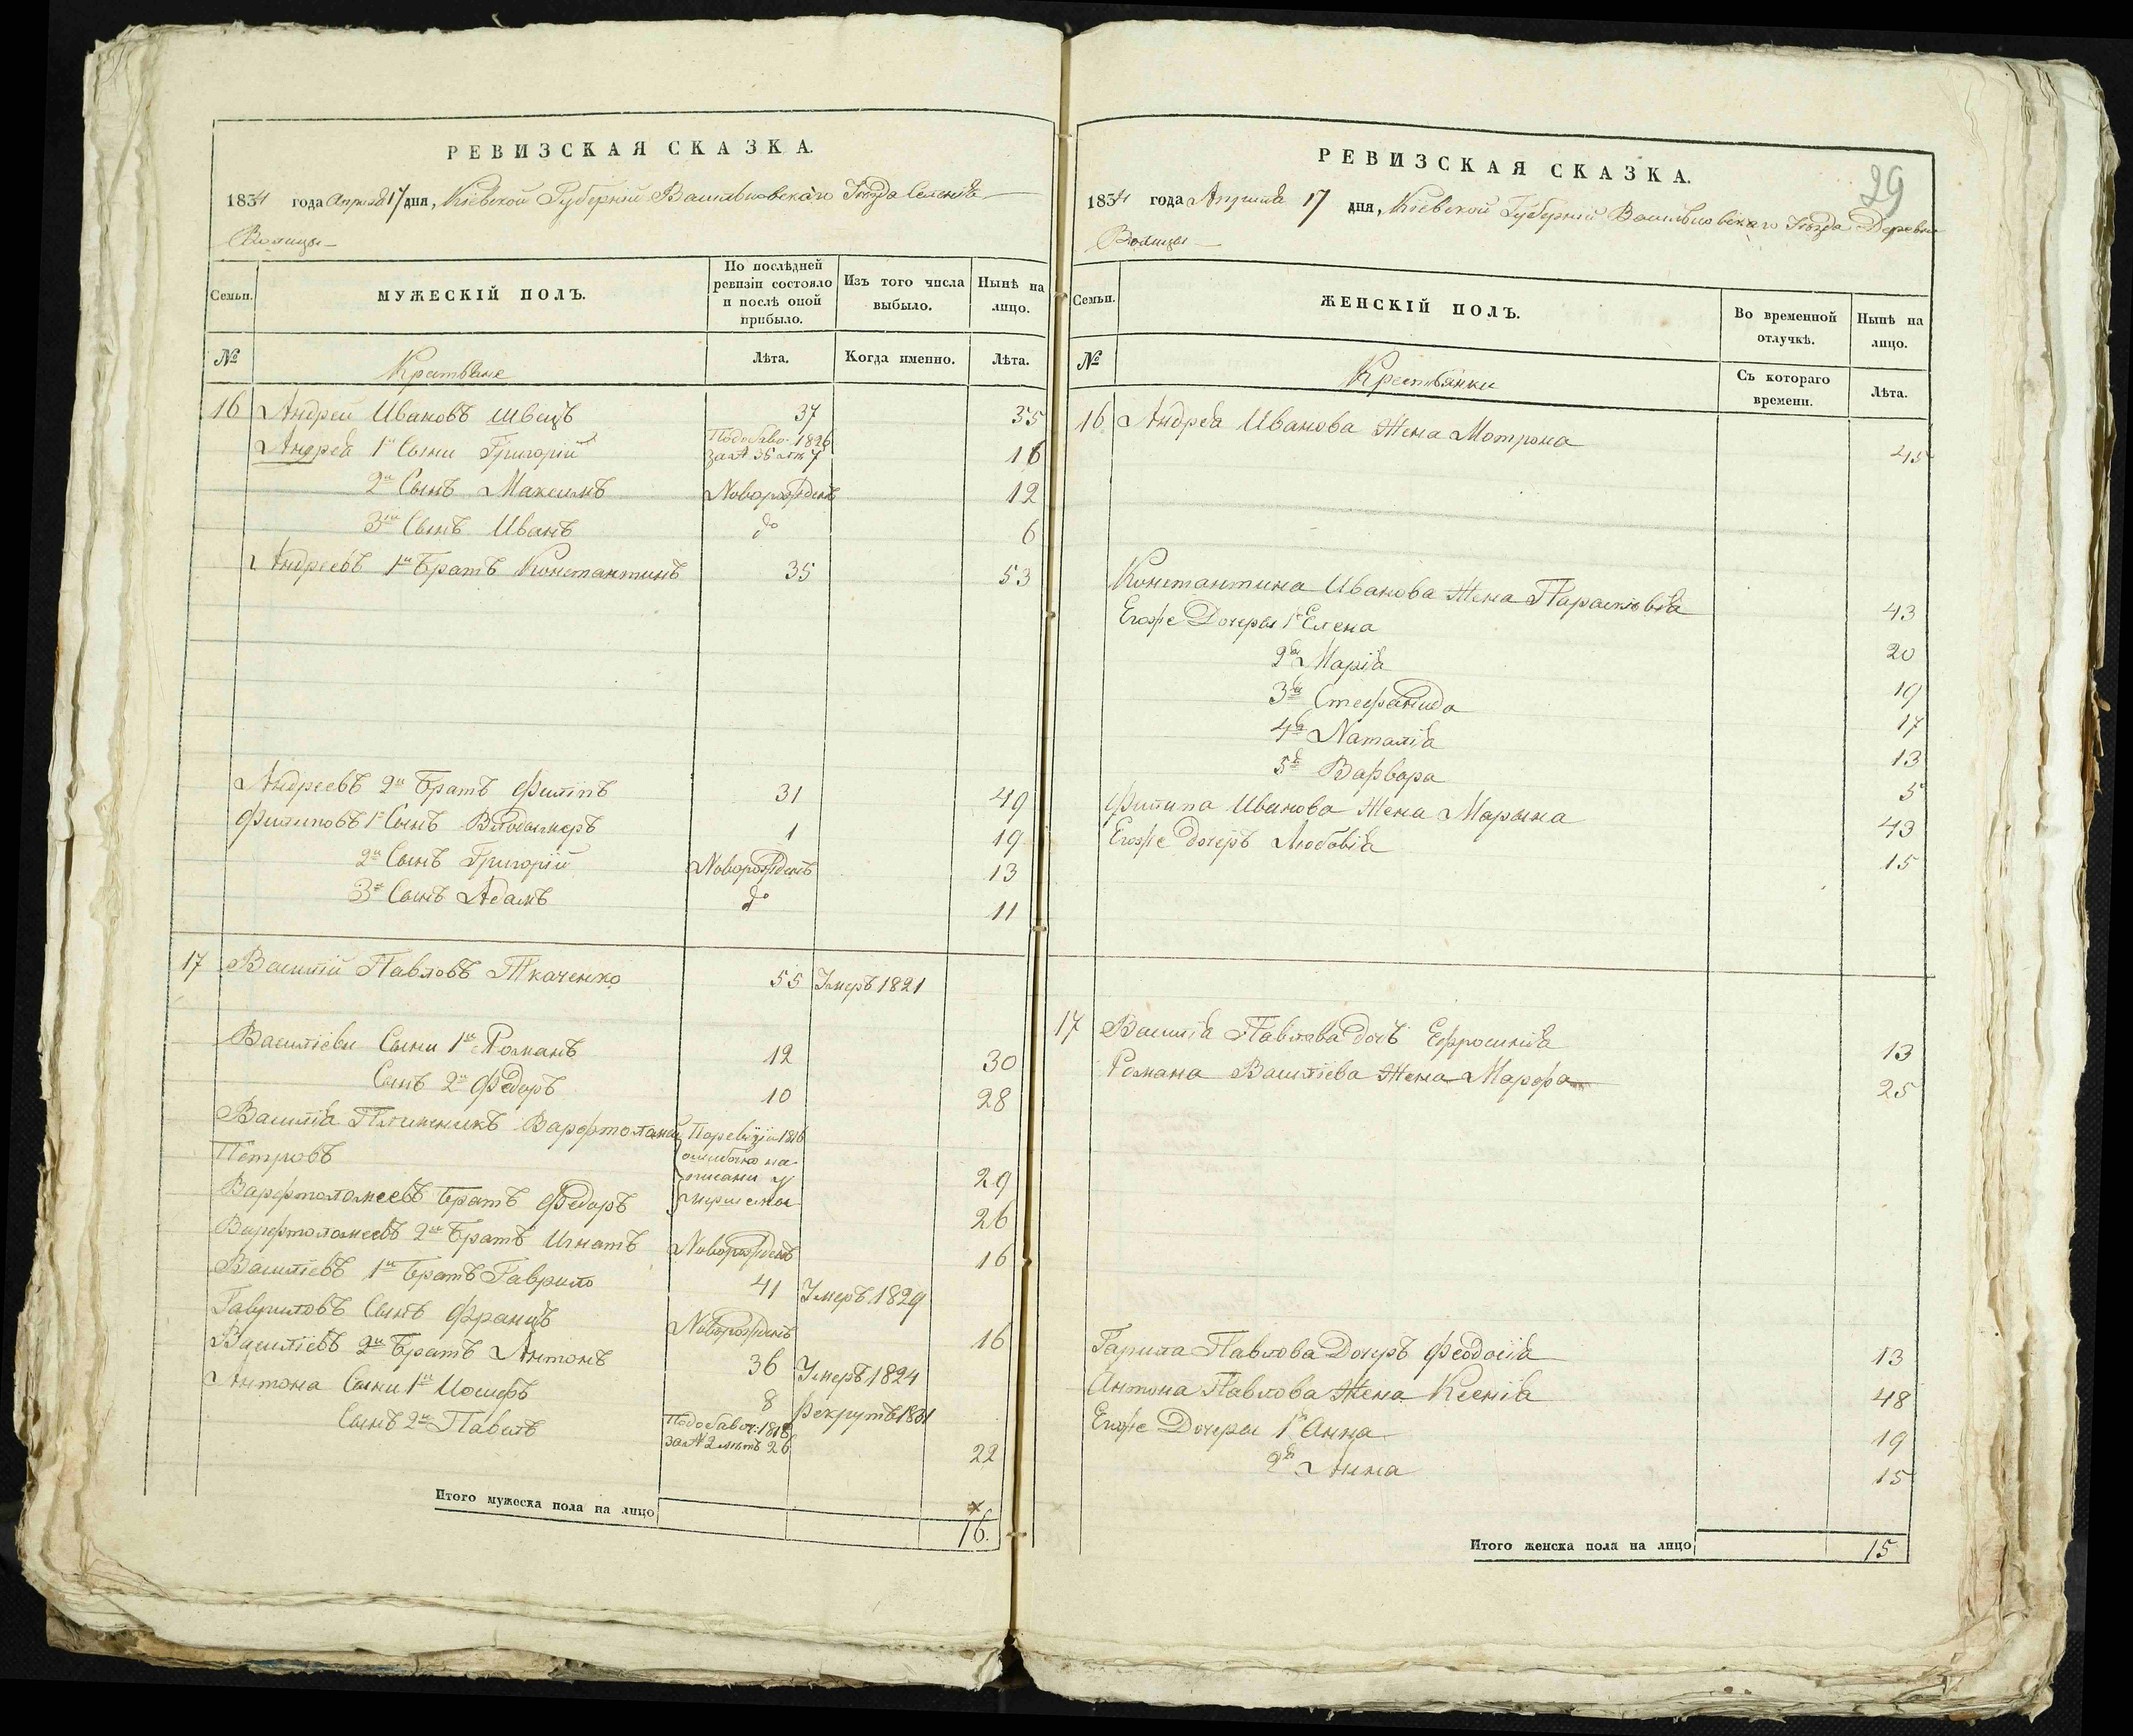 РЕВИЗСКАЯ СКАЗКА.
1834 года Апреля 17 дня, Кіевской Губерніи Васильковскаго Уезда Селенія
Волицы
Семьи.
МУЖЕСКІЙ ПОЛЪ.
По послѣдней ревизіи состояло и послѣ оной прибыло.
Изъ того числа выбыло.
Нынѣ на лицо.
№
Крестьяне
Лѣта.
Когда именно.
Лѣта.
16 Андрей Ивановъ Швецъ 37 35
Андрея 1й Сыни Григорій Подобаво: 1826 за № 36 лѣт 7 16
2й Сынъ Максимъ Новорожденъ 12
3ий Сынъ Иванъ до 6
Андреевъ 1й Братъ Константинъ 35 53
Андреевъ 2й Братъ Филіпъ 31 49
Филиповъ 1й Сынъ Влодымеръ 1 19
2й Сынъ Григорій Новорожденъ 13
3й Сынъ Адамъ до 11
17 Василій Павловъ Ткаченко 55 Умеръ 1821
Василіеви Сыни 1й Романъ 12 30
Сынъ 2й Федоръ 10 28
Василія Племникъ Варфтоломей Поревізіи 1816
Петровъ ошибкою на-
писани у 29
Варфтоломеевъ Братъ Федоръ 26
Варфтоломеевъ 2й Братъ Игнатъ Новорожденъ 16
Василіевъ 1й Братъ Гаврило 41 Умеръ 1829
Гавриловъ Сынъ Францъ Новорожденъ 16
Василіевъ 2й Братъ Антонъ 36 Умеръ 1824
Антона Сыни 1й Иосифъ 8 Рекрутъ 1831
Сынъ 2й Павелъ Подобавоч: 1818 за № 2 лѣтъ 26 22
Итого мужеска пола на лицо 16.
29
РЕВИЗСКАЯ СКАЗКА.
1834 года Апреля 17 дня, Кіевской Губерніи Васильковскаго Уезда Деревни
Волицы
Семьи.
ЖЕНСКІЙ ПОЛЪ.
Во временной отлучкѣ.
Нынѣ на лицо.
№
Крестьянки
Съ котораго времени.
Лѣта.
16 Андрея Иванова Жена Мотрона 45
Константина Иванова Жена Парасковія 43
Егоже Дочеры 1я Елена 20
2я Марія 19
3я Стефанида 17
4я Наталія 13
5я Варвара 5
Филипа Иванова Жена Марына 43
Егоже дочеръ Любовія 15
17 Василія Павлова дочъ Ефросинія 13
Романа Василіева Жена Марфа 25
Гарила Павлова Дочеръ Феодосія 13
Антона Павлова Жена Ксенія 48
Егоже Дочеры 1я Анна 19
2я Анна 15
Итого женска пола на лицо 15